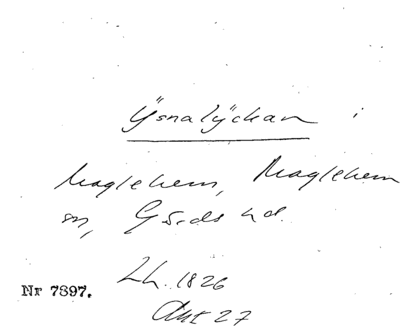 Ÿsnalÿckan i
Maglehem, Maglehem
sn, Gärds hd.
Lh. 1826
Akt 27
Nr 7897.